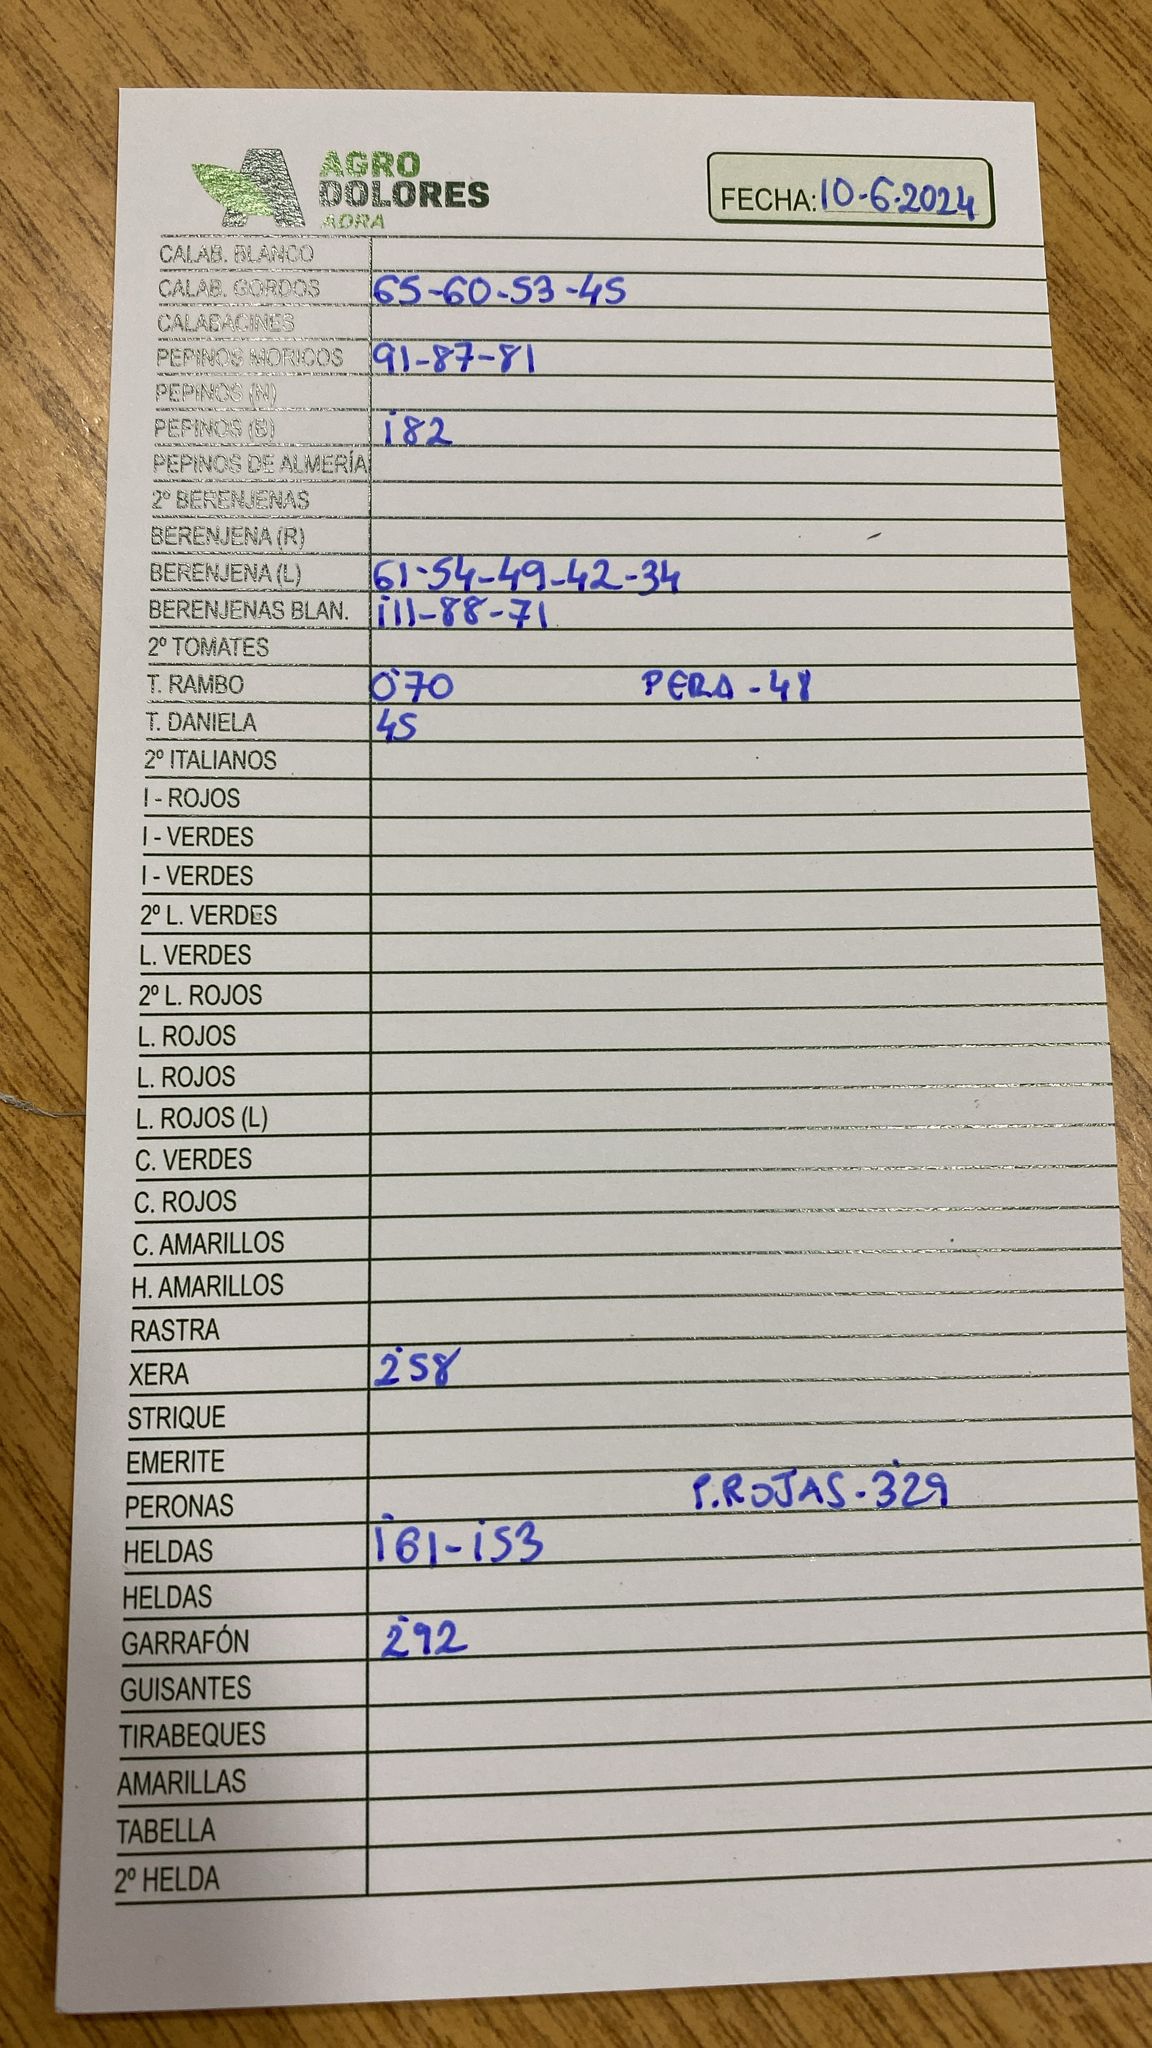 AGRO
DOLORES
ADRA
FECHA: 10-6-2024
CALAB. BLANCO
CALAB. GORDOS 65-60-53-45
CALABACINES
PEPINOS MORICOS 91-87-81
PEPINOS (N)
PEPINOS (B) 1'82
PEPINOS DE ALMERÍA
2º BERENJENAS
BERENJENA (R)
BERENJENA (L) 61-54-49-42-34
BERENJENAS BLAN. 1'11-88-71
2º TOMATES
T. RAMBO 0'70 PERA - 48
T. DANIELA 45
2º ITALIANOS
I - ROJOS
I - VERDES
I - VERDES
2º L. VERDES
L. VERDES
2º L. ROJOS
L. ROJOS
L. ROJOS
L. ROJOS (L)
C. VERDES
C. ROJOS
C. AMARILLOS
H. AMARILLOS
RASTRA
XERA 2'58
STRIQUE
EMERITE
PERONAS P.ROJAS-3'29
HELDAS 1'61-1'53
HELDAS
GARRAFÓN 2'92
GUISANTES
TIRABEQUES
AMARILLAS
TABELLA
2º HELDA